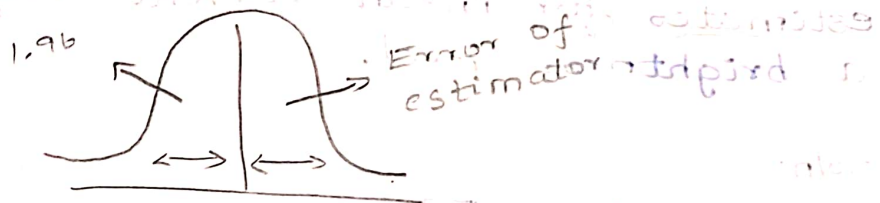 1.96
Error of
estimator